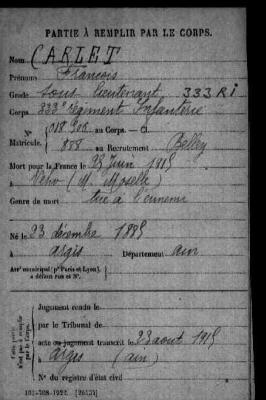 PARTIE À REMPLIR PAR LE CORPS.
Nom CARLET
Prénoms François
Grade sous lieutenant 333 RI
Corps 333e régiment Infanterie
N° 018 908 au Corps. — Cl
Matricule. 858 au Recrutement Belley
Mort pour la France le 23 juin 1915
à Veho (M. Moselle)
Genre de mort tué à l'ennemi
Né le 23 décembre 1885
à Argis Département Ain
Arrt municipal (pr Paris et Lyon),
à défaut rue et N°.
Jugement rendu le
par le Tribunal de
acte ou jugement transcrit le 23 août 1915
à Argis (Ain)
N° du registre d'état civil
Cette partie n'est pas à remplir par le Corps.
101-708-1922. [26434]